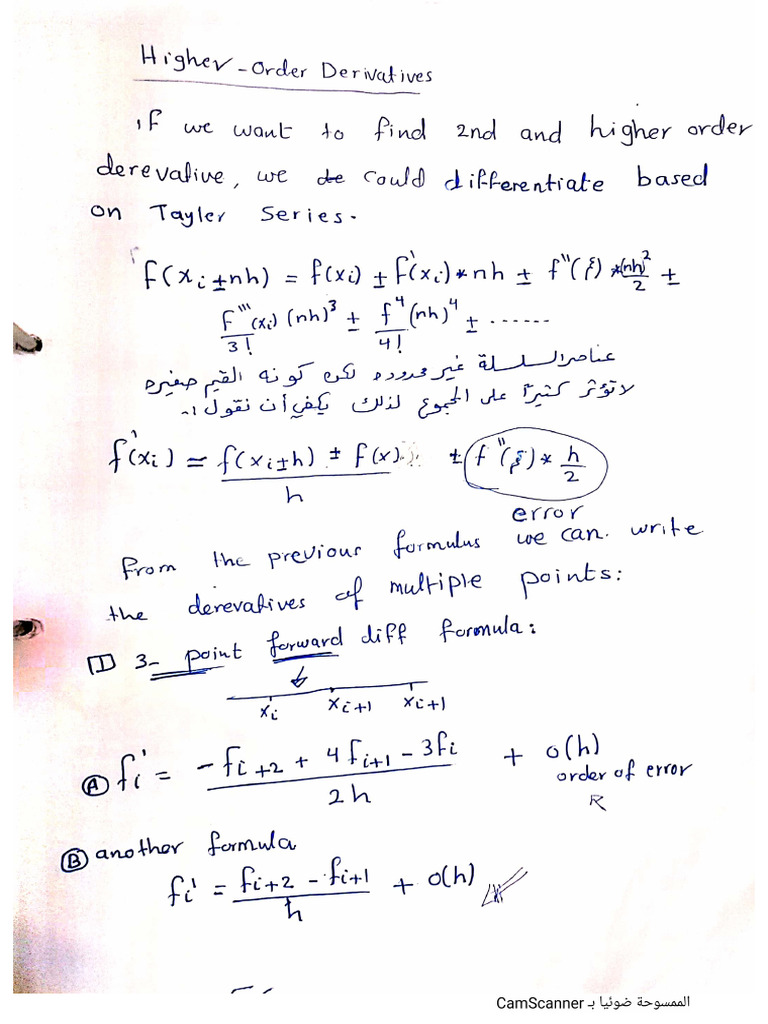 Higher-Order Derivatives
If we want to find 2nd and higher order
derevative, we de could differentiate based
on Tayler Series.
f(xi±nh) = f(xi) ± f'(xi)*nh ± f''(ξ)*(nh)²/2 ±
F'''(xi)(nh)³/3! ± f⁴(nh)⁴/4! ± ......
عناصر السلسلة غير محدوده لكن كونه القيم صغيره
لا تؤثر كثيراً على المجموع لذلك يكفي أن نقول :-
f'(xi) = f(xi±h) ± f(x)/h ± f''(ξ)* h/2
error
From the previous formulus we can write
the derevatives of multiple points:
1 3- point forward diff formula:
xi xi+1 xi+1
A fi' = -fi+2 + 4fi+1 - 3fi/2h + o(h)
order of error
B another formula
fi' = fi+2 - fi+1/h + o(h)
الممسوحة ضوئيا بـ CamScanner